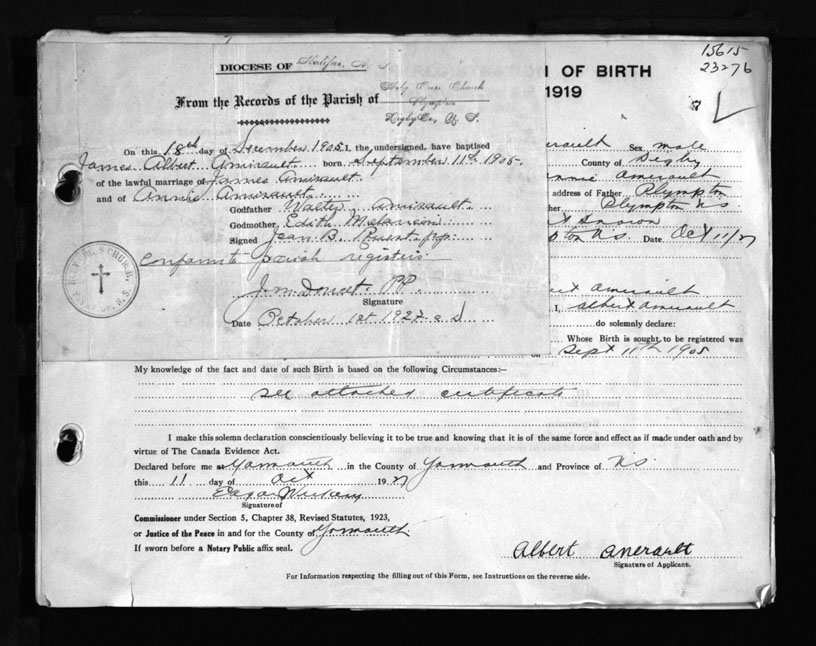 15615
23276
DIOCESE OF Halifax N. S.
From the Records of the Parish of Holy Cross Church
Plympton
Digby Co., N. S.
On this 18th day of December 1905 I, the undersigned, have baptised
James Albert Amirault born September 11th 1905
of the lawful marriage of James Amirault
and of Annie Amirault
Godfather Walter Amirault
Godmother, Edith
Signed Jean B.
Conform to parish registers
J. M. Doucet. P.P.
Signature
Date October 1st 1927 a d
OF BIRTH
1919
Sex male
County of Digby
Amerault
address of Father Plympton
Plympton N.S.
Date Oct 11/27
Amerault
I, Albert Amerault
do solemnly declare:
Whose Birth is sought to be registered was
on Sept 11th 1905
My knowledge of the fact and date of such Birth is based on the following Circumstances:—
see attached certificate
I make this solemn declaration conscientiously believing it to be true and knowing that it is of the same force and effect as if made under oath and by
virtue of The Canada Evidence Act.
Declared before me at Yarmouth in the County of Yarmouth and Province of N.S.
this 11 day of Oct 1927
Signature of
Commissioner under Section 5, Chapter 38, Revised Statutes, 1923,
or Justice of the Peace in and for the County of Yarmouth
If sworn before a Notary Public affix seal.
Albert Anerault
Signature of Applicant.
For Information respecting the filling out of this Form, see Instructions on the reverse side.